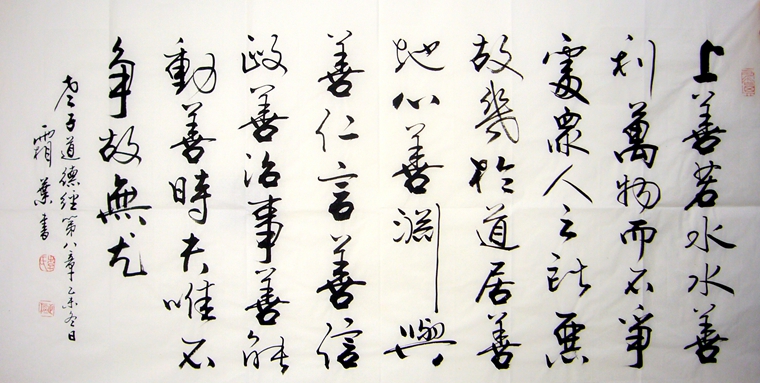 上善若水水善
利萬物而不爭
處衆人之所惡
故幾於道居善
地心善淵與
善仁言善信
政善治事善能
動善時夫唯不
争故無尤
老子道德經第八章乙未冬日
霜葉書